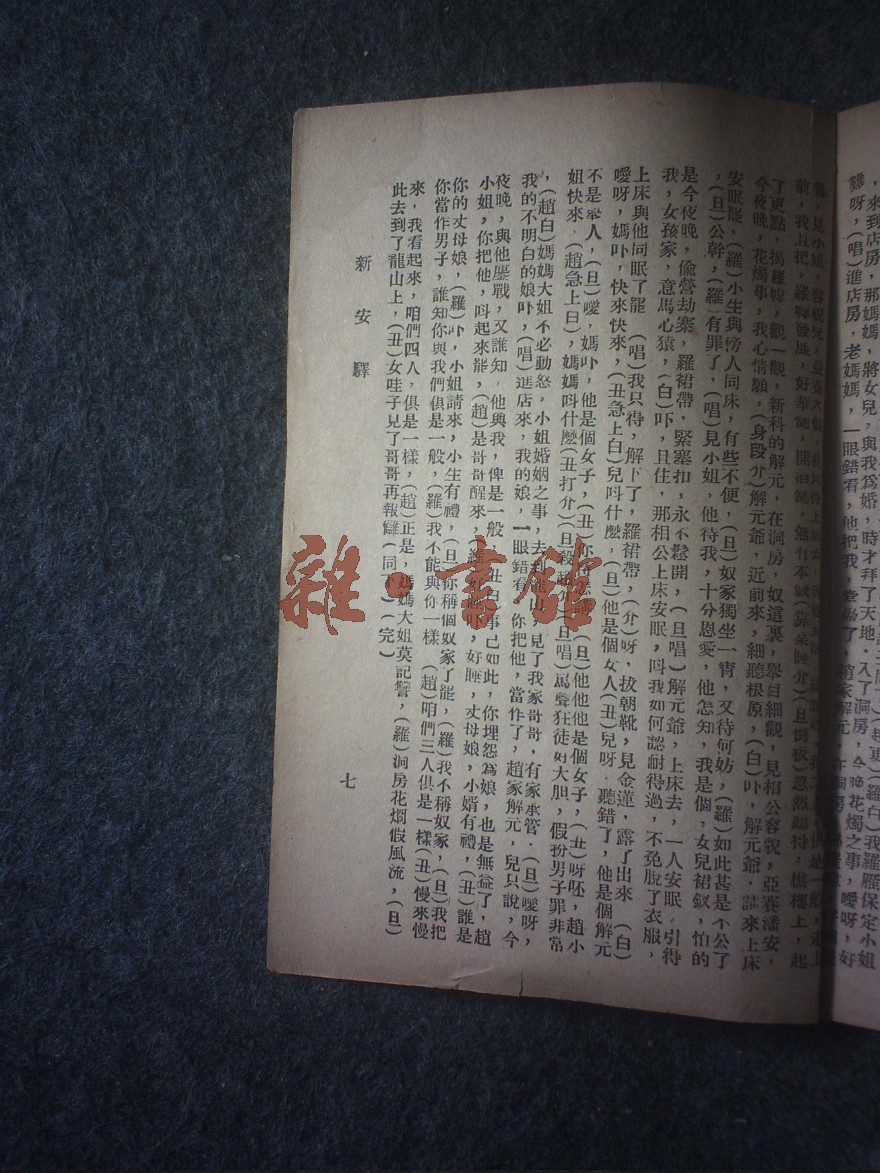 難呀，(唱)進店房，老媽媽，一眼錯看，他把我，
，來到店房，那媽媽，將女兒，與我爲婚，時才拜了天地，入了洞房，今晚花燭之事，噯呀，好
前，我且把，羅幃發展，
了更點，揭羅幃，觀一觀，新科的解元，在洞房，奴這裏，舉目細觀，見相公容貌，亞賽潘安，
今夜晚，花燭事，我心情願，(身段介)解元爺，近前來，細聽根原，(白)吓，解元爺，請來上床
安眠罷，(羅)小生與傍人同床，有些不便，(旦)奴家獨坐一宵，又待何妨，(羅)如此甚是不公了
，(旦)公幹，(羅)有罪了，(唱)見小姐，他待我，十分恩愛，他怎知，我是個，女兒裙釵，怕的
是今夜晚，偷營劫寨，羅裙帶，緊塞扣，永不鬆開，(旦唱)解元爺，上床去，一人安眠，引得
我，女孩家，意馬心猿，(白)吓，且住，那相公上床安眠，呌我如何認耐得過，不免脫了衣服，
上床與他同眠了罷，(唱)我只得，解下了，羅裙帶，(介)呀，拔朝靴，見金蓮，露了出來，(白)
噯呀，媽吓，快來快來，(丑急上白)兒呌什麽，(旦)他是個女人(丑)兒呀，聽錯了，他是個解元
不是舉人，(旦)噯，媽吓，他是個女子，(丑)你待怎講，(旦)他他他是個女子，(丑)呀呸，趙小
姐快來，(趙急上白)，媽媽呌什麽(丑打介)(旦殺趙介)(旦唱)罵聲狂徒好大胆，假扮男子罪非常
，(趙白)媽媽大姐不必動怒，小姐婚姻之事，去到他山，見了我家哥哥，有家承管，(旦)噯呀，
我的不明白的娘吓，(唱)進店來，我的娘，一眼錯看，你把他，當作了，趙家解元，兒只說，今
夜晚，與他鏖戰，又誰知，他與我，俾是一般，(丑白)事已如此，你埋怨爲娘，也是無益了，趙
小姐，你把他，呌起來罷，(趙)是哥哥醒來，(羅)好睡吓，好睡，丈母娘，小婿有禮，(丑)誰是
你的丈母娘，(羅)吓，小姐請來，小生有禮，(旦)你稱個奴家了罷，(羅)我不稱奴家，(旦)我把
你當作男子，誰知你與我們俱是一般，(羅)我不能與你一樣，(趙)咱們三人俱是一樣(丑)慢來慢
來，我看起來，咱們四人，俱是一樣，(趙)正是，媽媽大姐莫記讐，(羅)洞房花燭假風流，(旦)
此去到了龍山上，(丑)女哇子見了哥哥再報讎(同下)(完)
新安驛
七
雜·書館